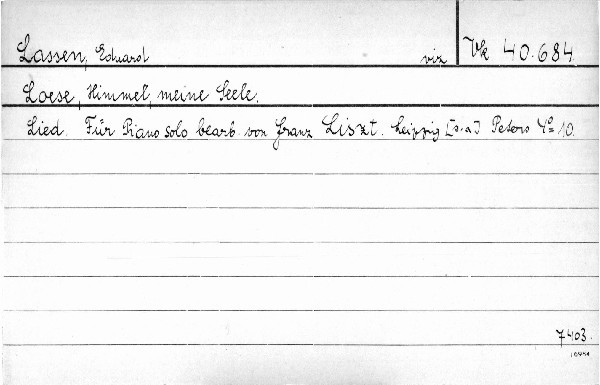 Lassen, Eduard viz Vk 40.684
Loese, Himmel, meine Seele.
Lied. Für Piano solo bearb. von Franz Liszt. Leipzig [s.a.] Peters 4° 10.
7403.